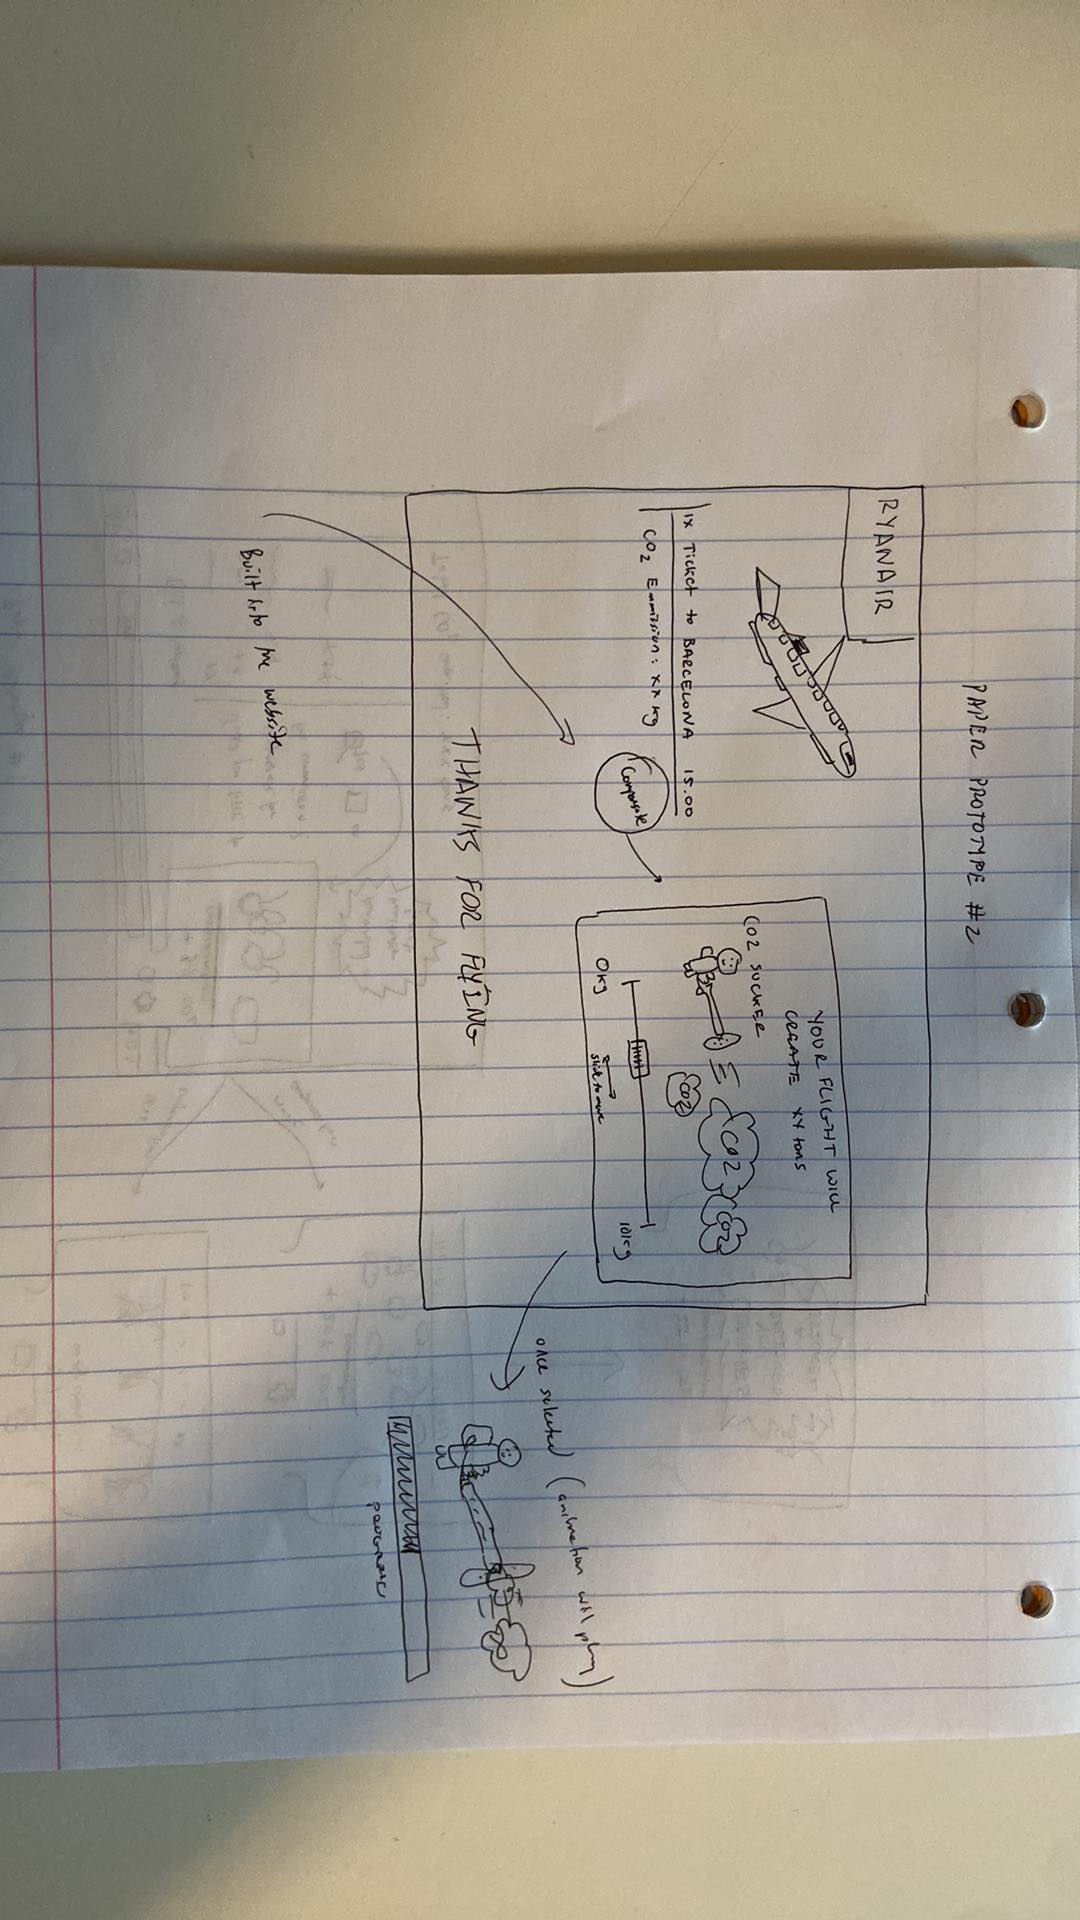 PAPER PROTOTYPE #2
RYANAIR
1x Ticket to BARCELONA 15.00
CO2 Emmission: XX kg
Compensate
YOUR FLIGHT WILL
CREATE XY tons
CO2 SUCKER
CO2
CO2
CO2
0kg
10kg
slide to move
THANKS FOR FLYING
Built into the website
once selected (animation will play)